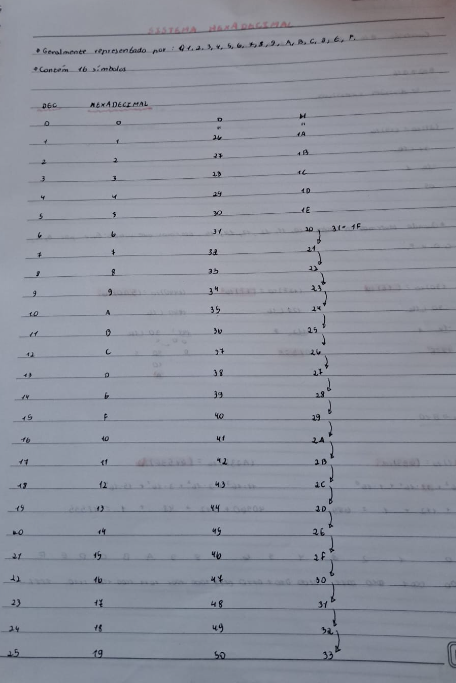 SISTEMA HEXADECIMAL
* Geralmente representado por: 0 1, 2, 3, 4, 5, 6, 7, 8, 9, A, B, C, D, E, F.
* Contém 16 símbolos
DEC HEXADECIMAL
0 0 D H
1 1 26 1A
2 2 27 1B
3 3 28 1C
4 4 29 1D
5 5 30 1E
6 6 31 20 31- 1F
7 7 32 21
8 8 33 22
9 9 34 23
10 A 35 24
11 B 36 25
12 C 37 26
13 D 38 27
14 E 39 28
15 F 40 29
16 10 41 2A
17 11 42 2B
18 12 43 2C
19 13 44 2D
20 14 45 2E
21 15 46 2F
22 16 47 30
23 17 48 31
24 18 49 32
25 19 50 33